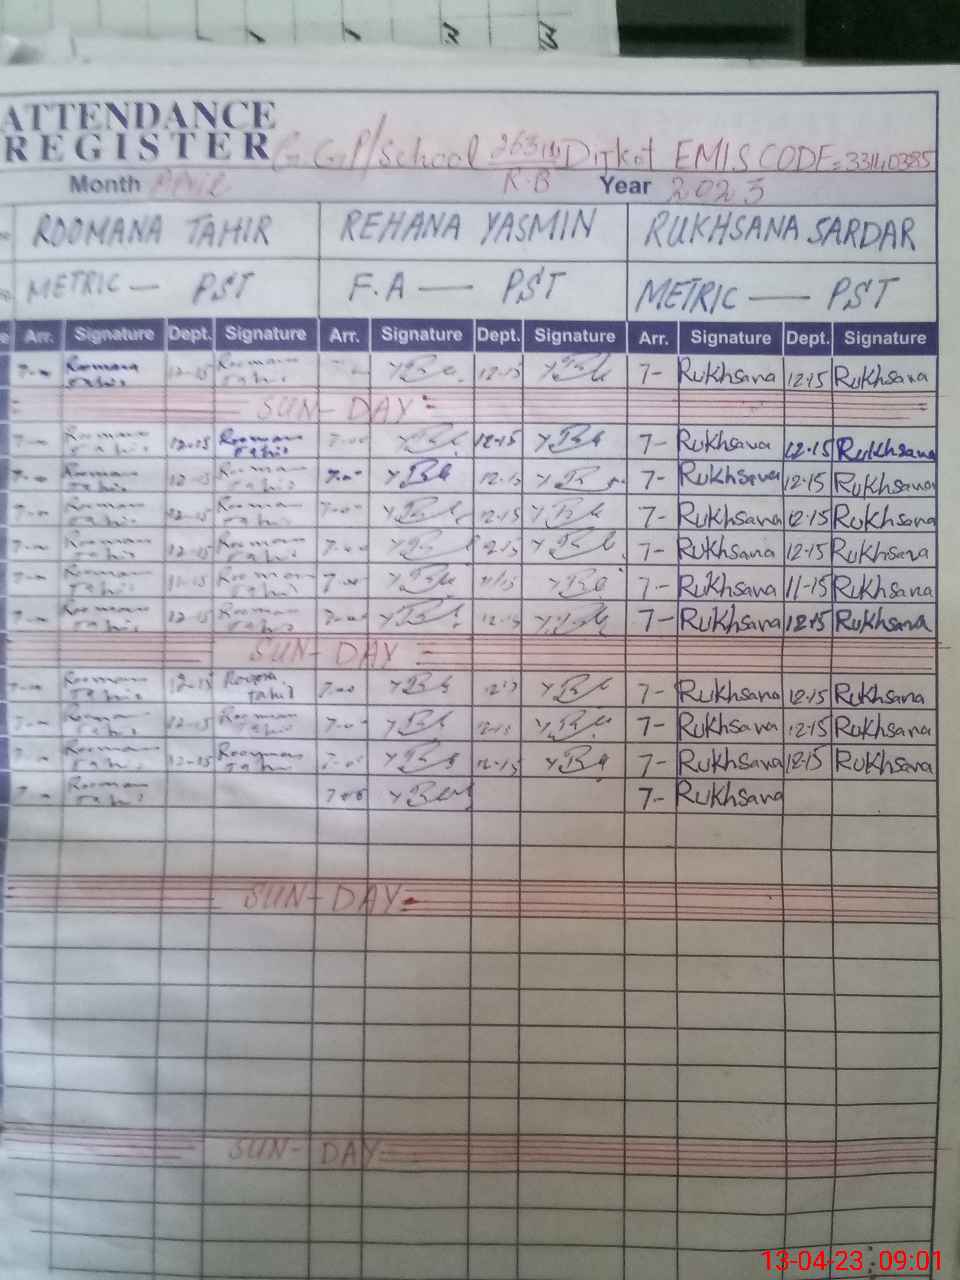 ATTENDANCE
REGISTER G.G.P/School 263 Dijkot EMIS CODE=33140385
R.B
Month April Year 2023
ROOMANA TAHIR REHANA YASMIN RUKHSANA SARDAR
METRIC — PST F.A — PST METRIC — PST
Arr. Signature Dept. Signature Arr. Signature Dept. Signature Arr. Signature Dept. Signature
Roomana Tahir 12-15 Roomana Tahir 12-15 7- Rukhsana 12-15 Rukhsana
SUN-DAY
Roomana Tahir 12-15 Roomana Tahir 7-00 12-15 7- Rukhsana 12-15 Rukhsana
Roomana Tahir 12-15 Roomana Tahir 7-00 12-15 7- Rukhsana 12-15 Rukhsana
Roomana Tahir 12-15 Roomana Tahir 7-00 12-15 7- Rukhsana 12-15 Rukhsana
Roomana Tahir 12-15 Roomana Tahir 7-00 12-15 7- Rukhsana 12-15 Rukhsana
Roomana Tahir 11-15 Roomana Tahir 7-00 11-15 7- Rukhsana 11-15 Rukhsana
Roomana Tahir 12-15 Roomana Tahir 7-00 12-15 7- Rukhsana 12-15 Rukhsana
SUN-DAY
Roomana Tahir 12-15 Roomana Tahir 7-00 7- Rukhsana 12-15 Rukhsana
Roomana Tahir 12-15 Roomana Tahir 7-00 12-15 7- Rukhsana 12-15 Rukhsana
Roomana Tahir 12-15 Roomana Tahir 12-15 7- Rukhsana 12-15 Rukhsana
Roomana Tahir 7-00 7- Rukhsana
SUN-DAY
SUN-DAY
13-04-23 09:01